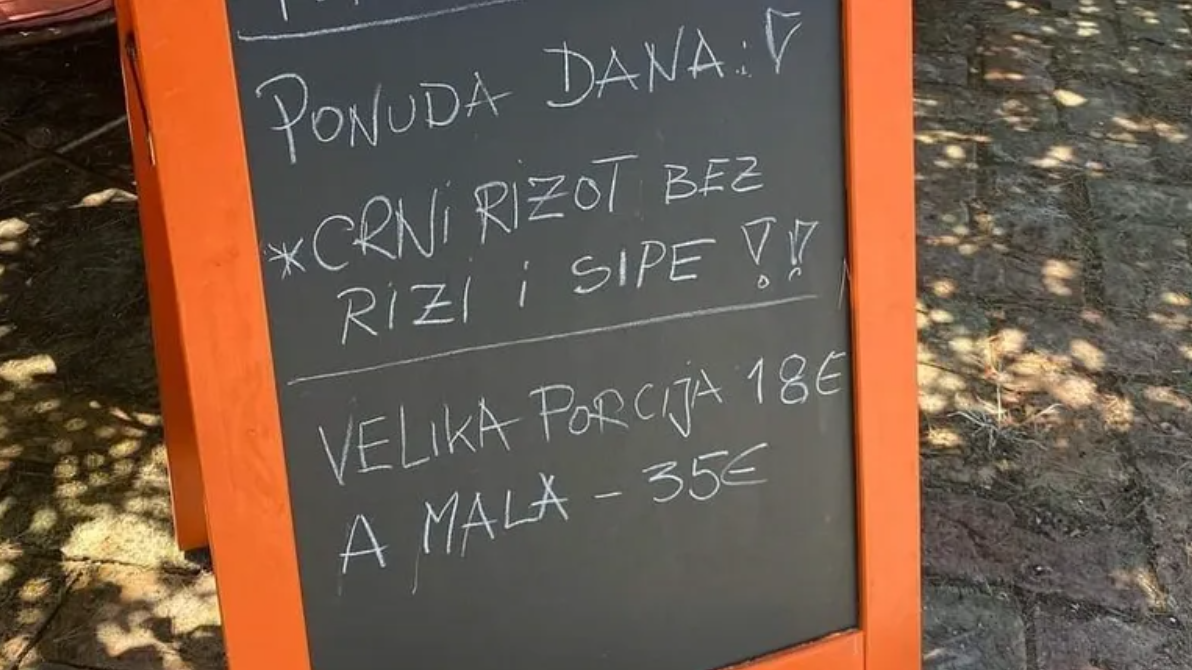 PONUDA DANA:!
*CRNI RIZOT BEZ
RIZI I SIPE !!
VELIKA PORCIJA 18€
A MALA - 35€